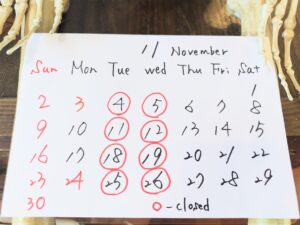 11 November
Sun Mon Tue wed Thu Fri Sat
1
2 3 4 5 6 7 8
9 10 11 12 13 14 15
16 17 18 19 20 21 22
23 24 25 26 27 28 29
30
o-closed